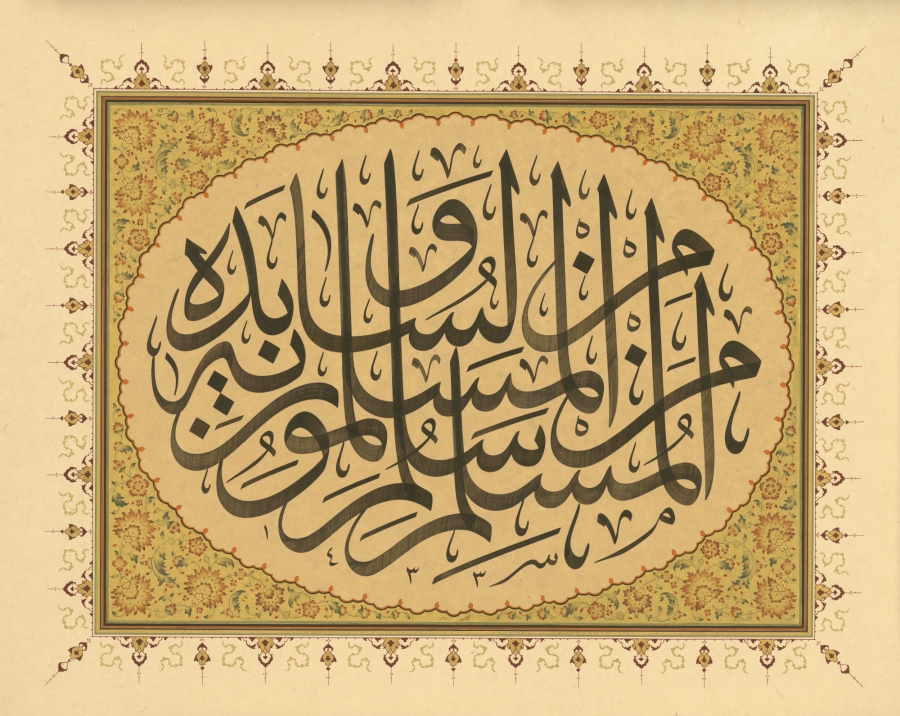 المسلم من سلم المسلمون من لسانه ويده
١٤٣٣